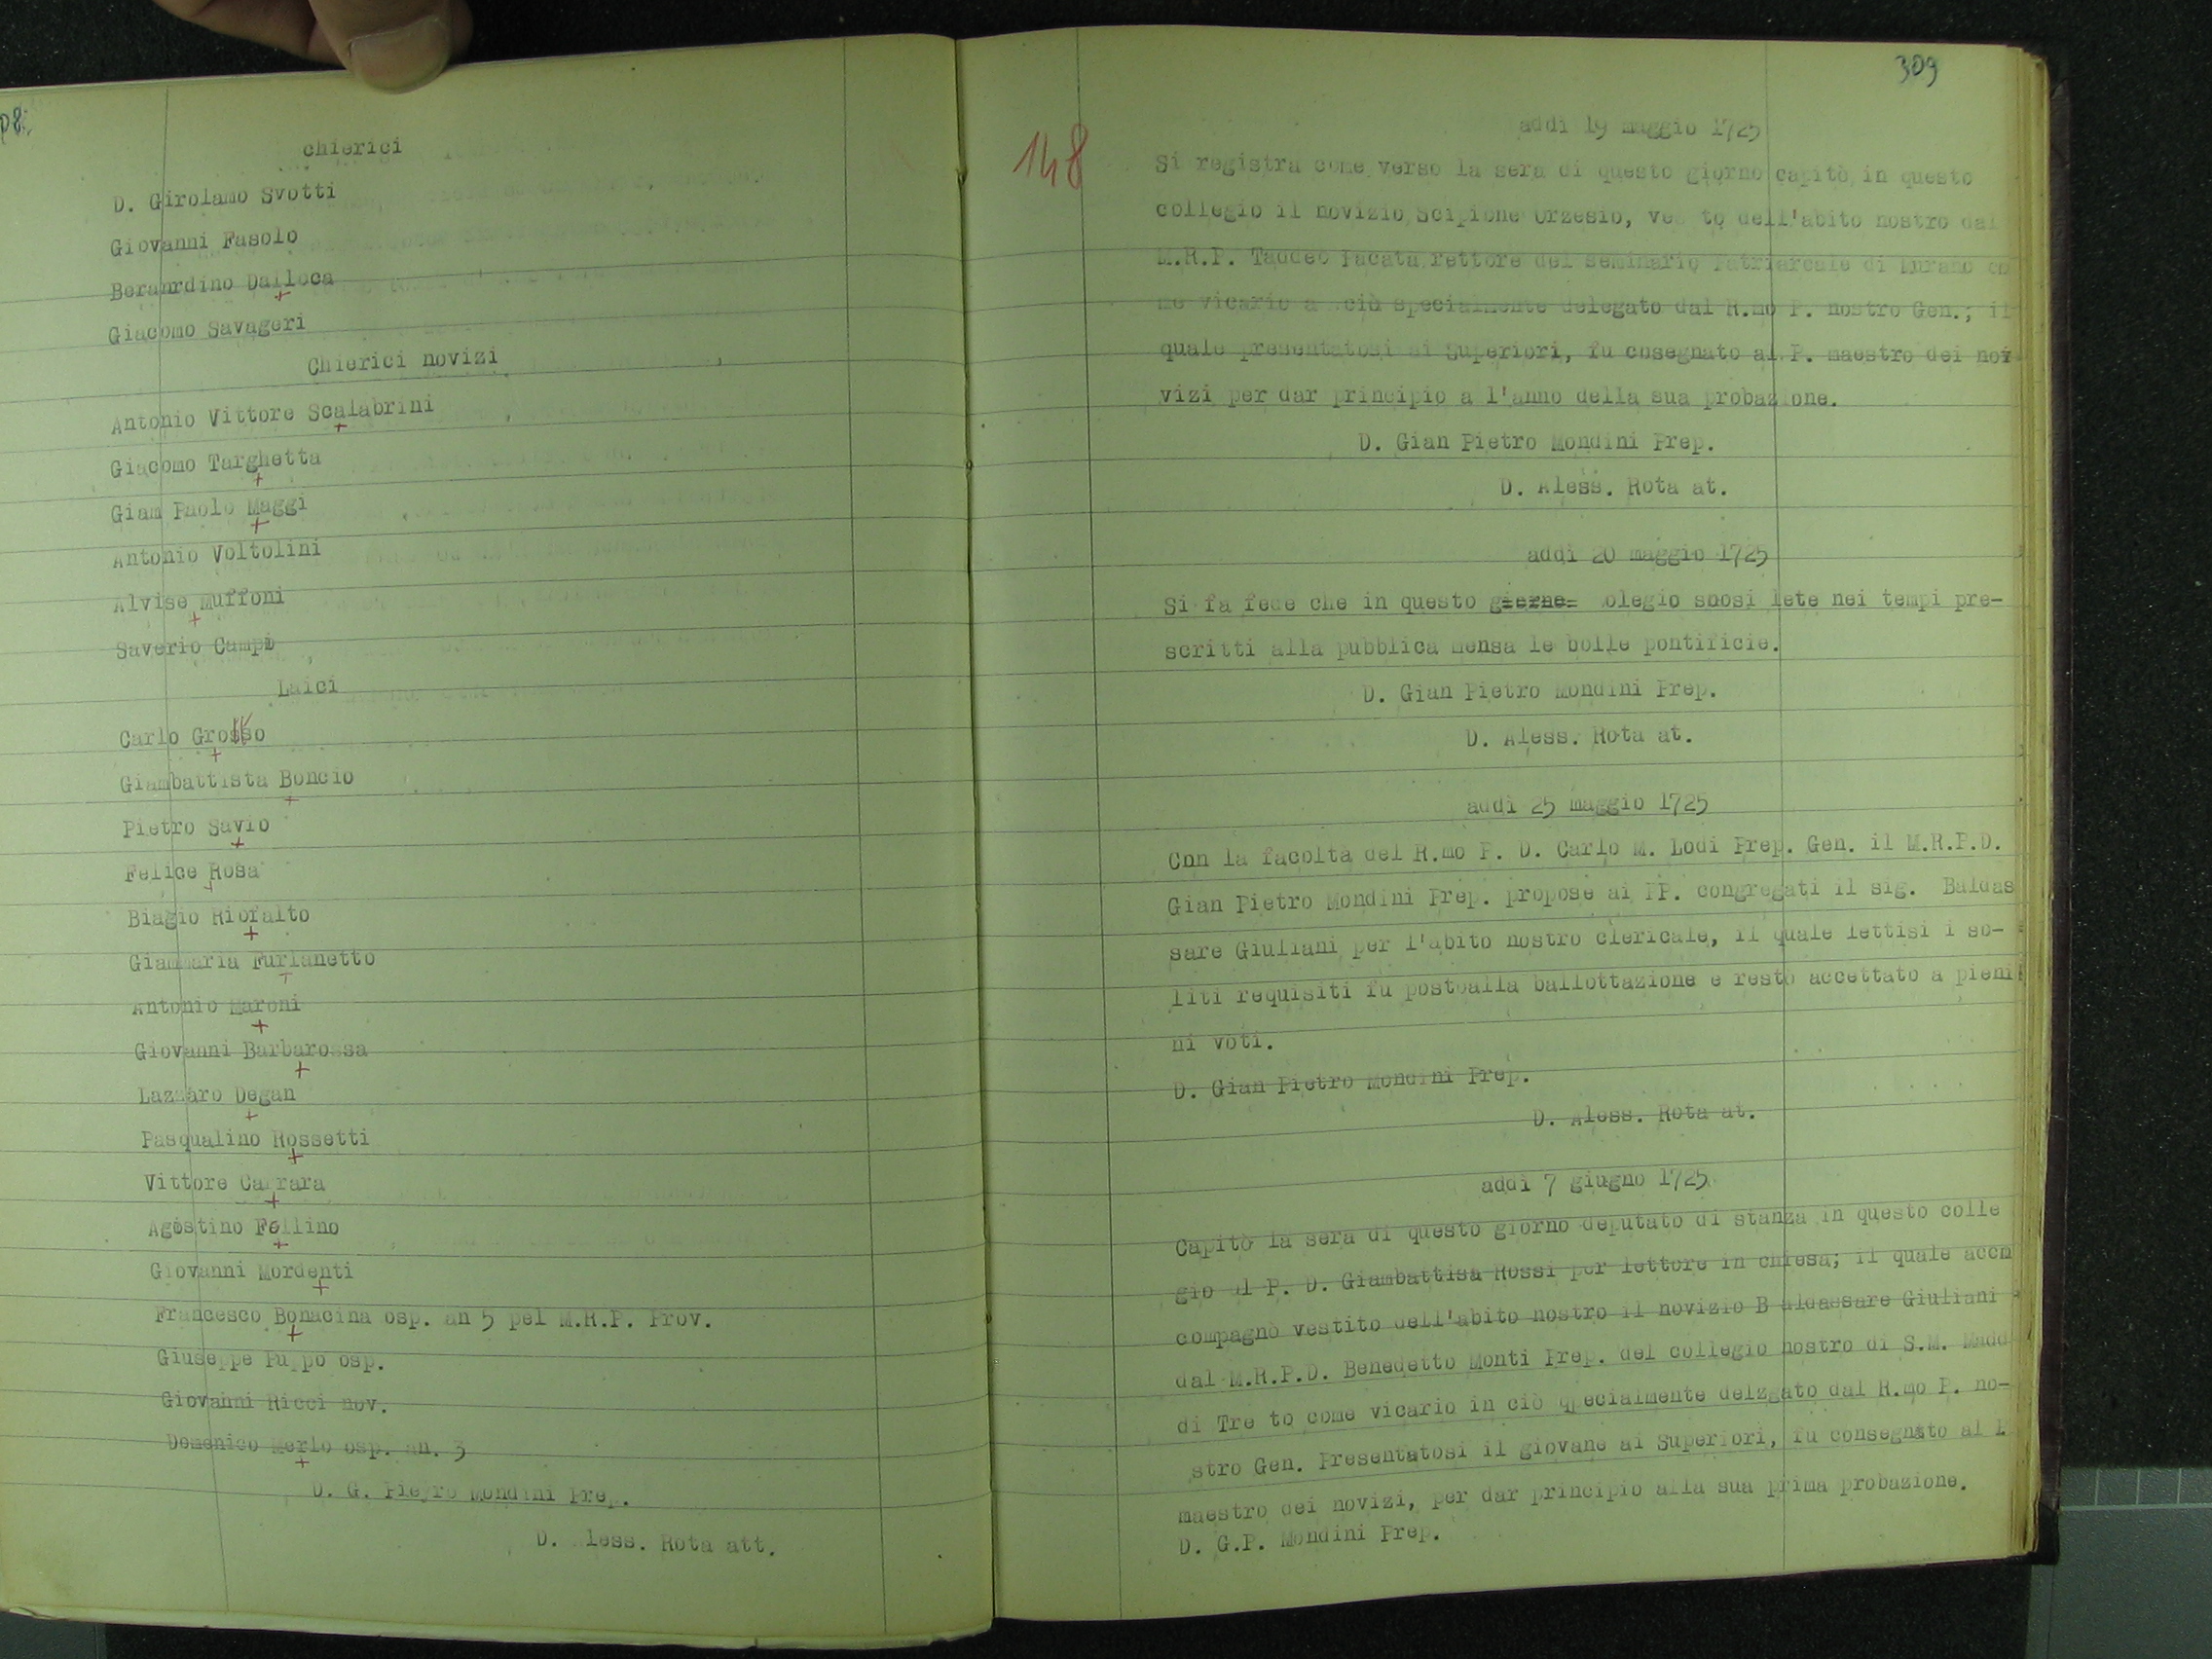 chierici
D. Girolamo Svotti
Giovanni Fasolo
Berahrdino Dalloca
Giacomo Savageri
Chierici novizi
Antonio Vittore Scalabrini
Giacomo Targhetta
Giam Paolo Maggi
Antonio Voltolini
Alvise Muffoni
Saverio Campi
Laici
Carlo Grosso
Giambattista Boncio
Pietro Savio
Felice Rosa
Biagio Riofalto
Giammaria Furlanetto
Antonio Maroni
Giovanni Barbarossa
Lazzaro Degan
Pasqualino Rossetti
Vittore Carrara
Agostino Fellino
Giovanni Mordenti
Francesco Bonacina osp. an 5 pel M.R.P. Prov.
Giuseppe Puppo osp.
Giovanni Ricci nov.
Domenico Merlo osp. an. 3
D. G. Pieyro Mondini Prep.
D. less. Rota att.
309
148
addi 19 maggio 1725
Si registra come verso la sera di questo giorno capitò in questo
collegio il novizio Scipione Orzesio, ves to dell'abito nostro dal
M.R.P. Taddeo Pacata rettore del seminario Patriarcale di Murano co
me vicario a ciù specialmente delegato dal R.mo P. nostro Gen.; il
quale presentatosi ai Superiori, fu cnsegnato al P. maestro dei noi
vizi per dar principio a l'anno della sua probazione.
D. Gian Pietro Mondini Prep.
D. Aless. Rota at.
addi 20 maggio 1725
Si fa fede che in questo gierne olegio snosi lete nei tempi pre-
scritti alla pubblica mensa le bolle pontificie.
D. Gian Pietro Mondini Prep.
D. Aless. Rota at.
addì 25 maggio 1725
Cnn la facoltà del R.mo P. D. Carlo M. Lodi Prep. Gen. il M.R.P.D.
Gian Pietro Mondini Prep. propose ai PP. congregati il sig. Baldas
sare Giuliani per l'abito nostro clericale, il quale lettisi i so-
liti requisiti fu postoalla ballottazione e restò accettato a pieni
ni voti.
D. Gian Pietro Mondini Prep.
D. Aless. Rota at.
addi 7 giugno 1725
Capitò la sera di questo giorno deputato di stanza in questo colle
gio il P. D. Giambattisa Rossi per lettore in chiesa; il quale accm
compagnò vestito dell'abito nostro il novizio B aldassare Giuliani
dal M.R.P.D. Benedetto Monti Prep. del collegio nostro di S.M. Madd
di Tre to come vicario in ciò qpecialmente delzgato dal R.mo P. no-
stro Gen. Presentatosi il giovane ai Superiori, fu consegnato al P
maestro dei novizi, per dar principio alla sua prima probazione.
D. G.P. Mondini Prep.